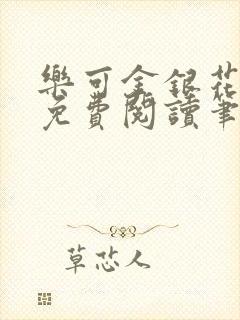 樂可金銀花
免費閱讀筆
草芯人